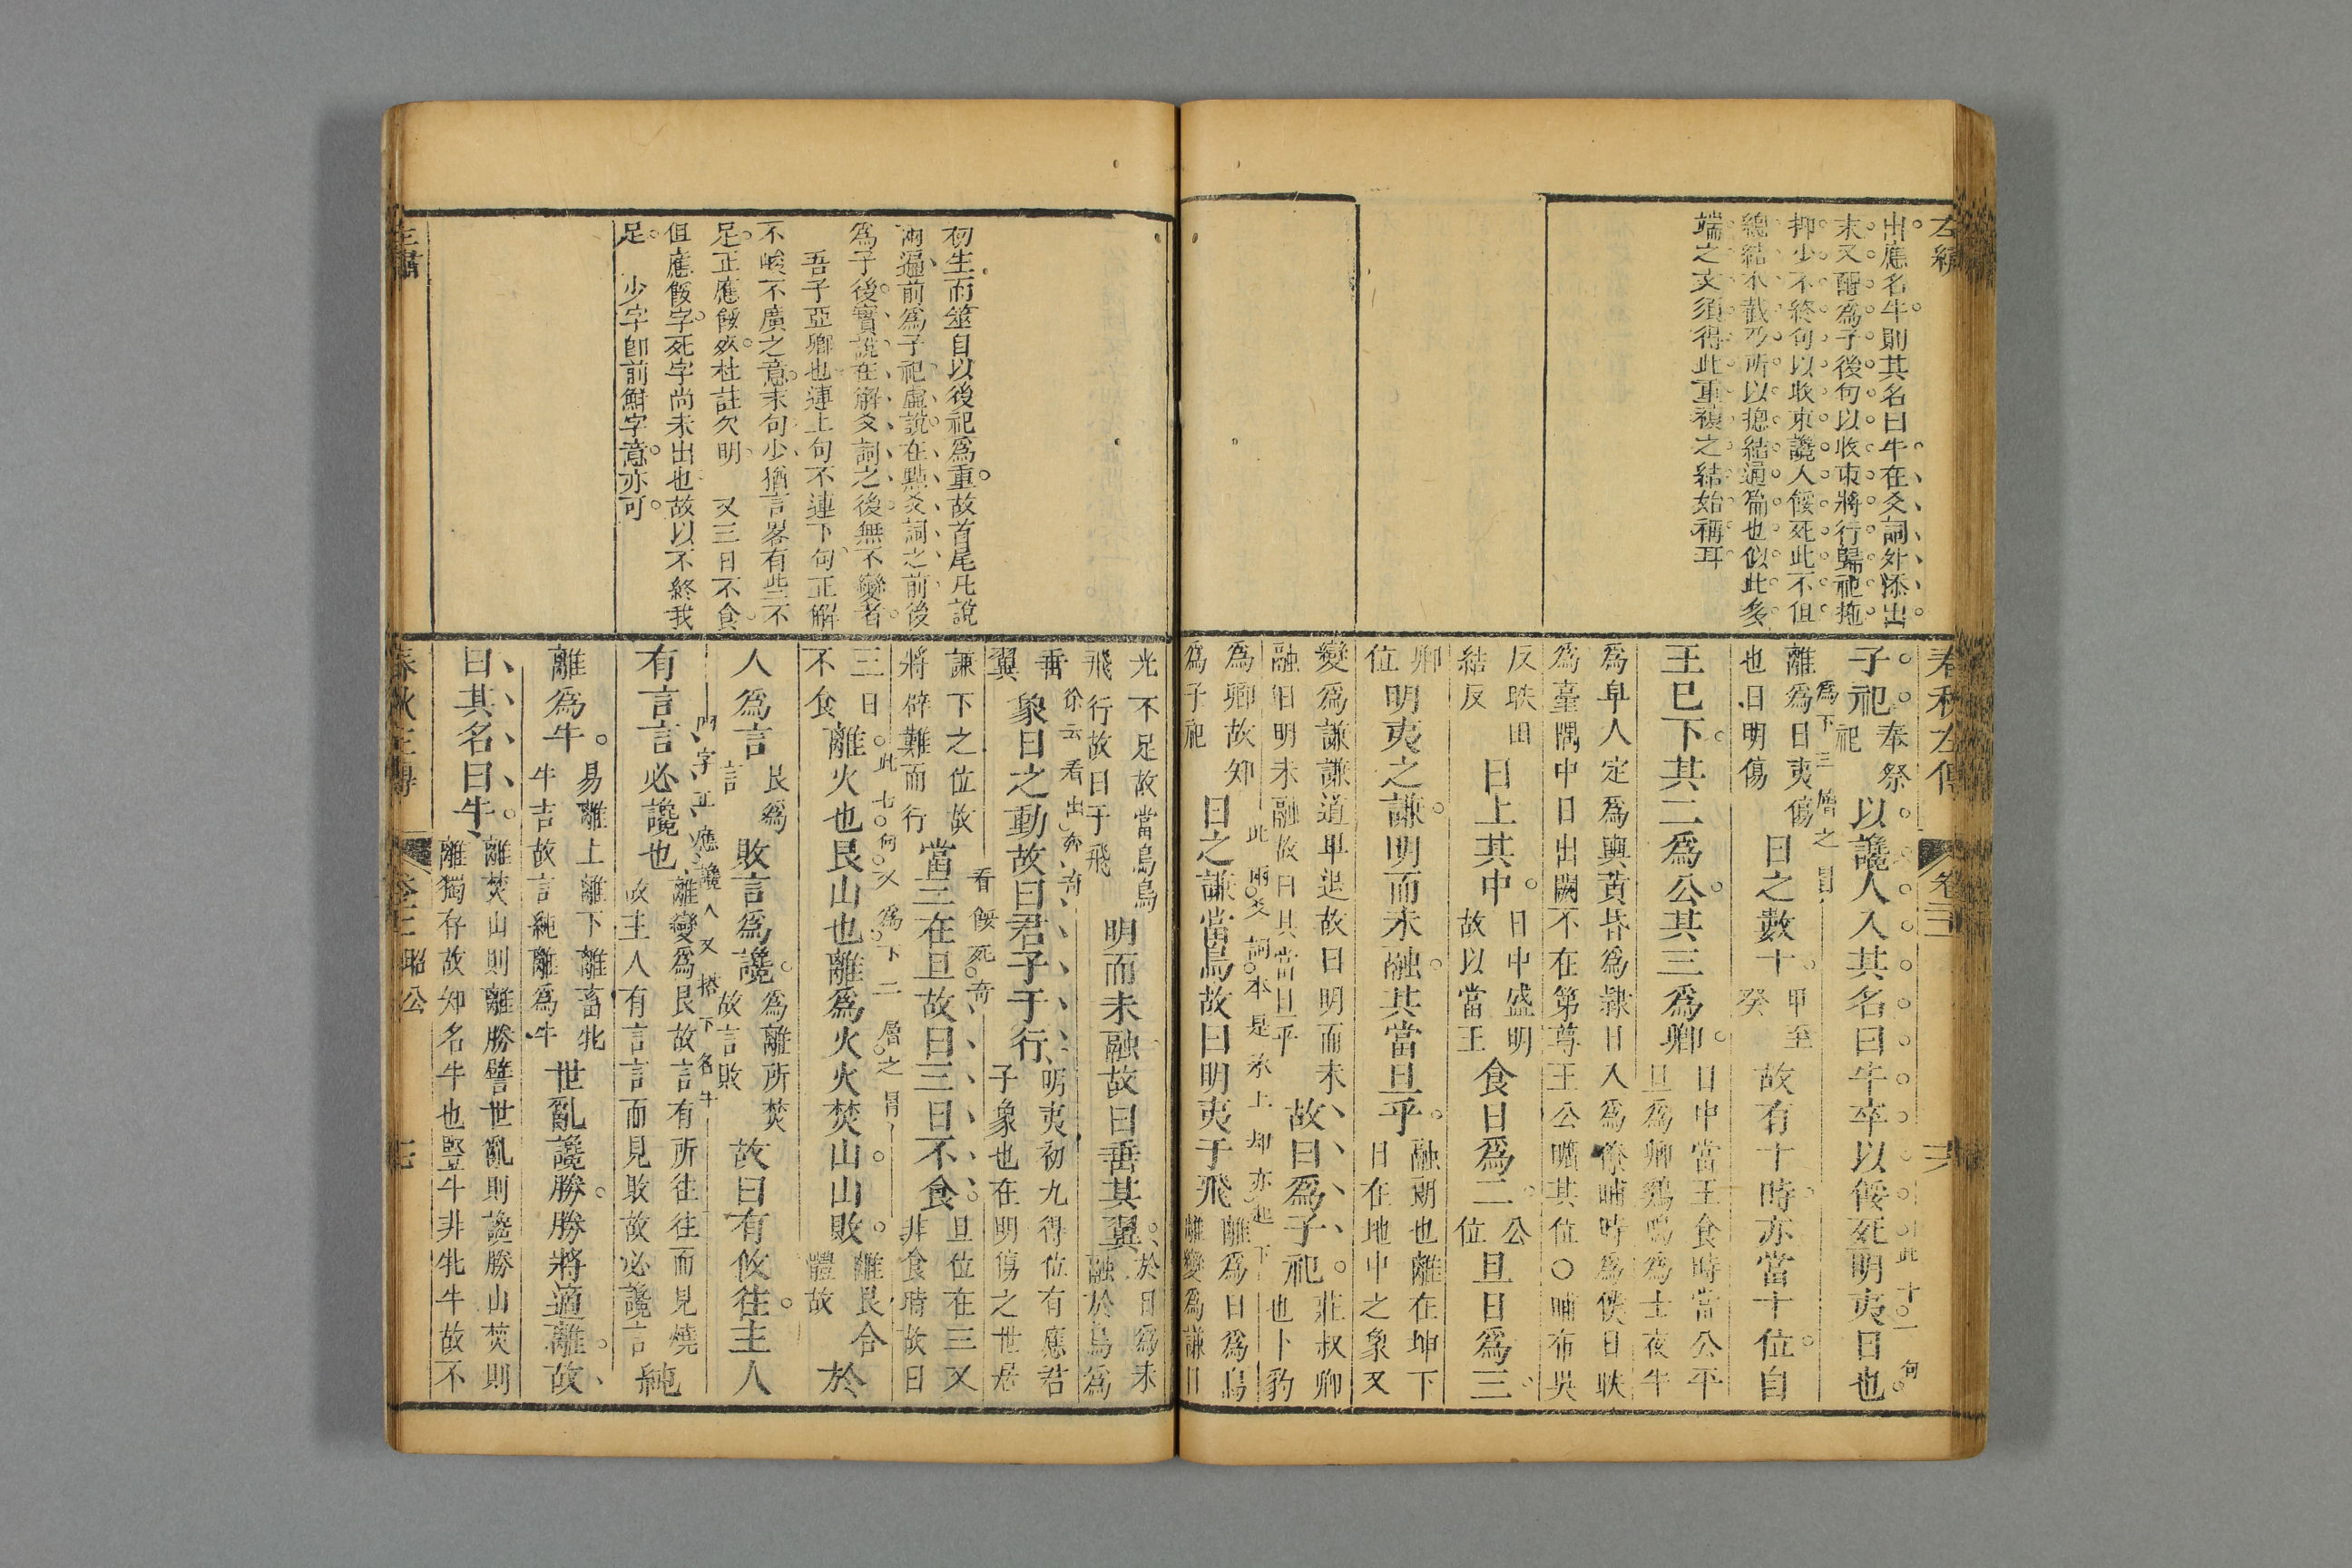 左繡
出應名牛則其名曰牛在爻詞外添出
末又醒爲子後句以收束將行歸祀拖
抑少不終句以收束讒人餒死此不但
總結不截乃所以摠結通篇也似此多
端之文須得此重複之結始稱耳
春秋左傳
卷二
子祀
奉祭
祀
以讒人入其名曰牛卒以餒死明夷日也
此十一句
爲下三層之冒
離爲日夷傷
也日明傷
日之數十
甲至
癸
故有十時亦當十位自
王巳下其二爲公其三爲卿
日中當王食時當公平
旦爲卿鷄鳴爲士夜半
爲皁人定爲輿黃昏爲隸日入爲僚晡時爲僕日昳
爲臺隅中日出闕不在第尊王公曠其位○晡布吳
反昳田
結反
日上其中
日中盛明
故以當王
食日爲二
公
位
旦日爲三
卿
位
明夷之謙明而未融其當旦乎
融朗也離在坤下
日在地中之象又
變爲謙謙道卑退故曰明而未
融日明未融故曰其當旦乎
故曰爲子祀
莊叔卿
也卜豹
爲卿故知
爲子祀
此兩爻詞本是承上却亦起下
日之謙當鳥故曰明夷于飛
離爲日爲鳥
離變爲謙日
初生而筮自以後祀爲重故首尾凡說
兩遍前爲子祀虛說在點爻詞之前後
爲子後實說在解爻詞之後無不變者
吾子亞卿也連上句不連下句正解
不峻不廣之意末句少猶言畧有些不
足正應餒㱥杜註欠明　又三日不食
但應餒字死字尚未出也故以不終我
足　少字卽前鮮字意亦可
光不足故當鳥鳥
飛行故曰于飛
明而未融故曰垂其翼
於日爲未
融於鳥爲
垂
翼
徐云看出奔奇
象日之動故曰君子于行
明夷初九得位有應君
子象也在明傷之世居
謙下之位故
將辟難而行
看餒死奇
當三在旦故曰三日不食
旦位在三又
非食時故曰
三日
不食
此七句又爲下二層之冒
離火也艮山也離爲火火焚山山敗
離艮合
體故
於
人爲言
艮爲
言
敗言爲讒
爲離所焚
故言敗
故曰有攸往主人
有言言必讒也
離變爲艮故言有所往往而見燒
故主人有言言而見敗故必讒言
純
離爲牛
易離上離下離畜牝
牛吉故言純離爲牛
世亂讒勝勝將適離故
曰其名曰牛
離焚山則離勝譬世亂則讒勝山焚則
離獨存故知名牛也豎牛非牝牛故不
春秋左傳
昭公
七